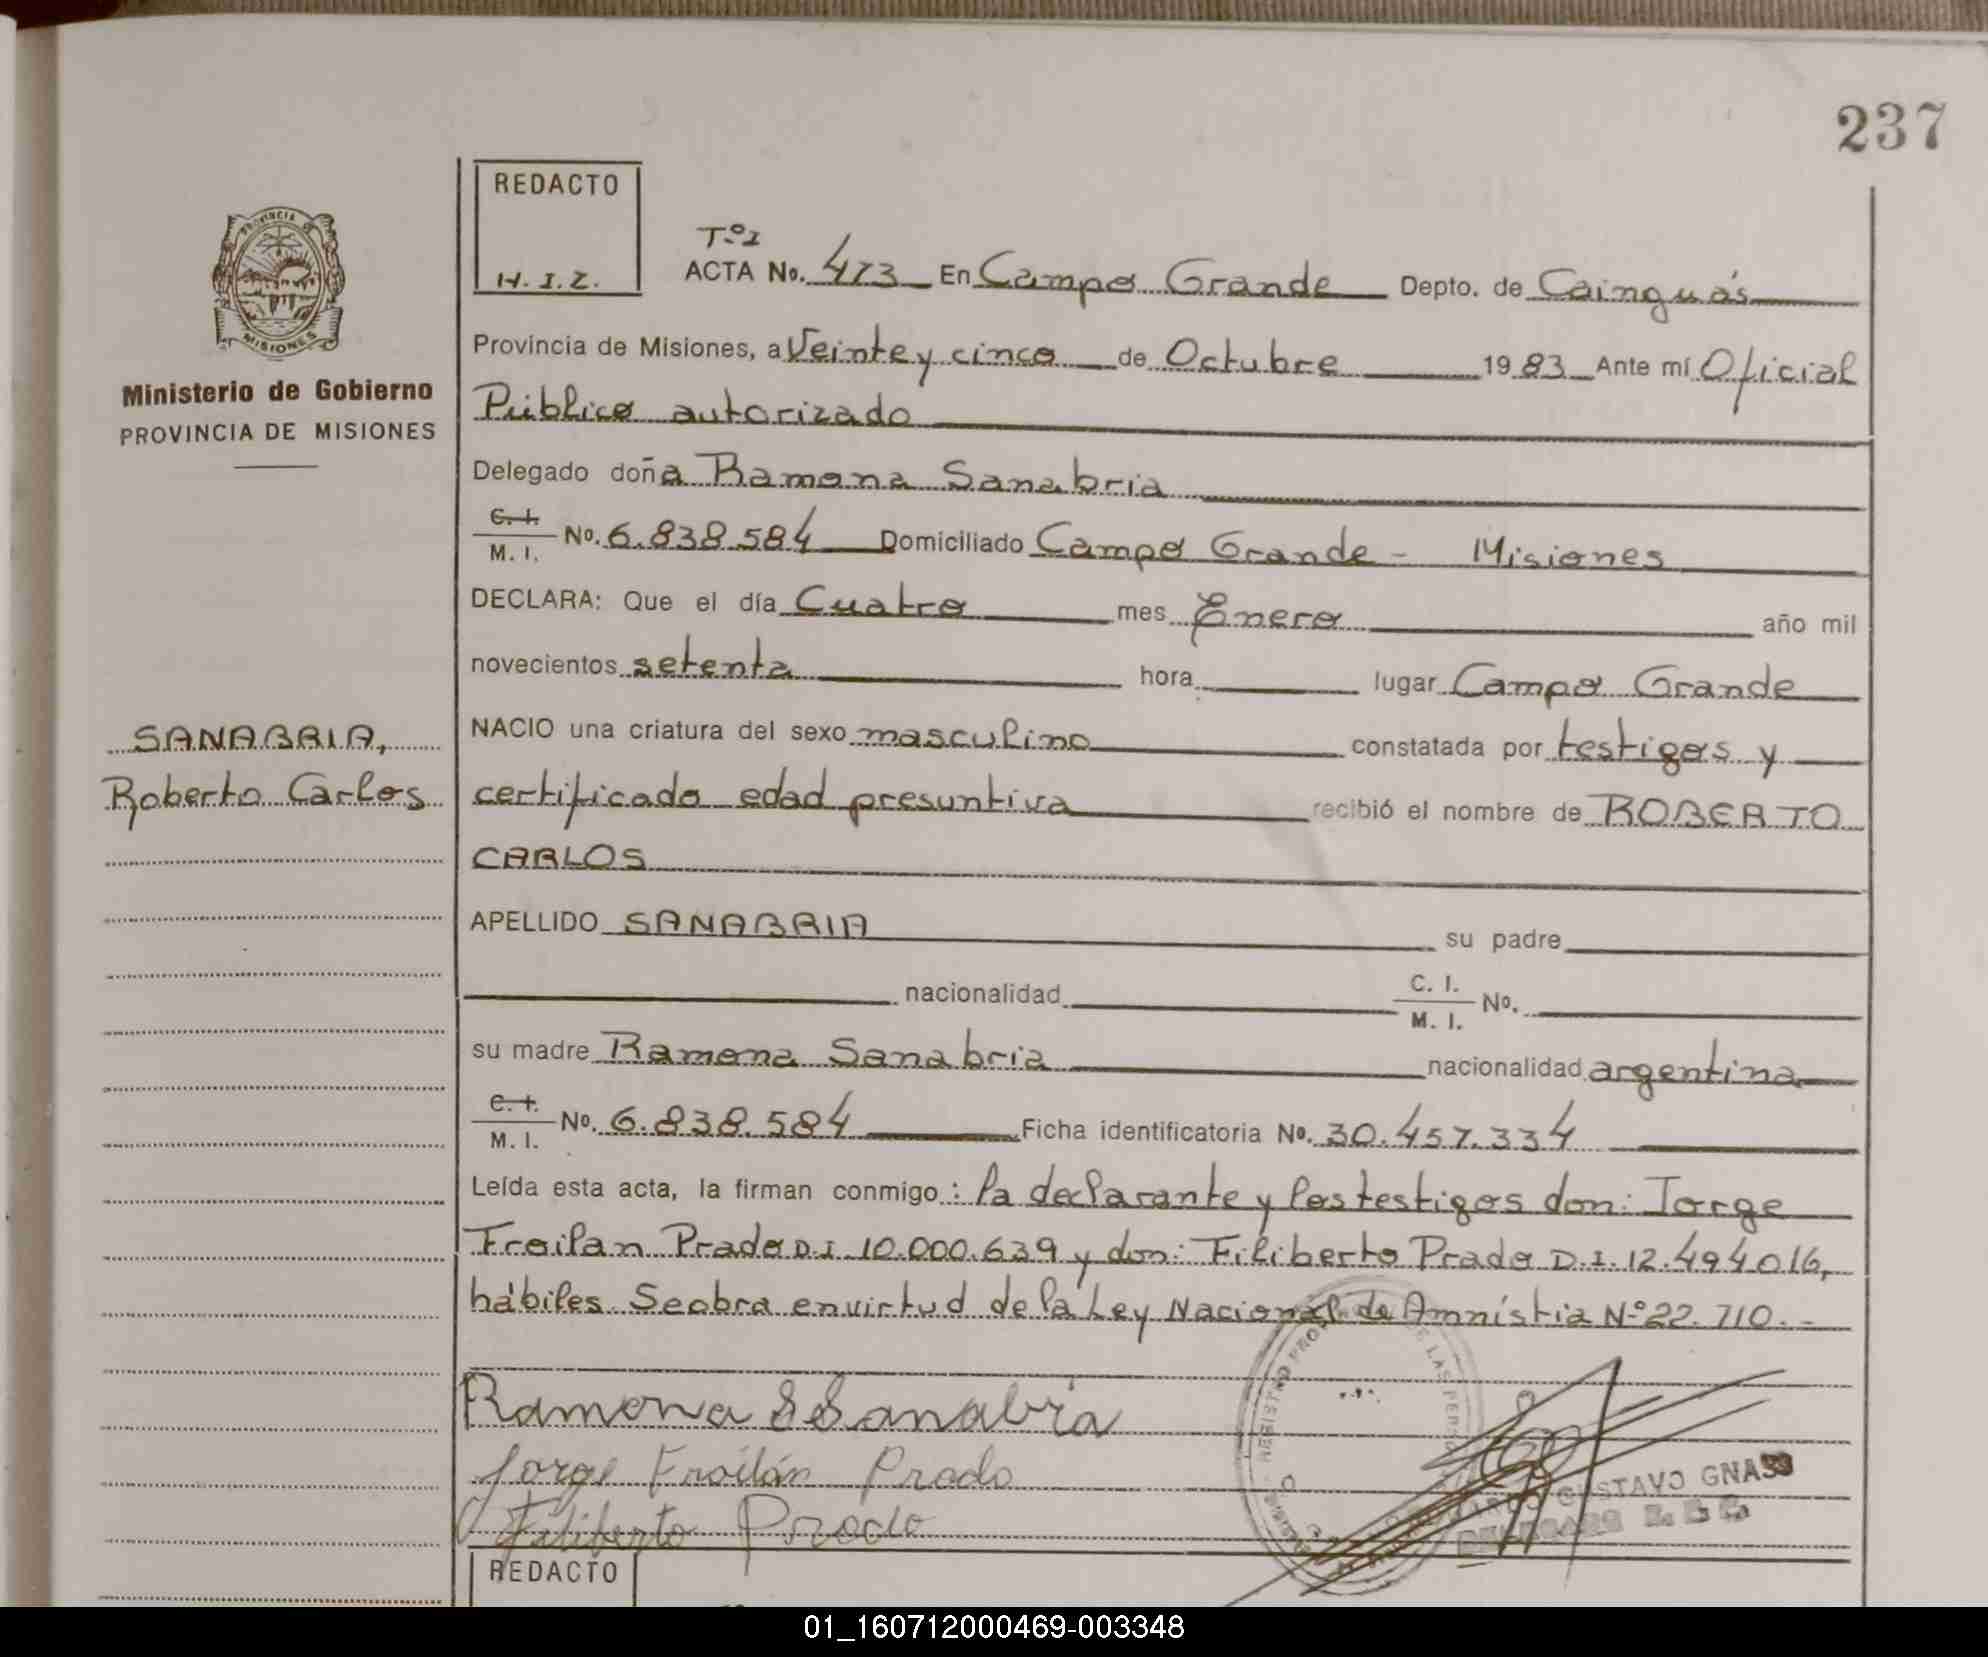 237
REDACTO
H. I. Z.
Tº I
ACTA No. 473 En Campo Grande Depto. de Cainguás
PROVINCIA
MISIONES
Provincia de Misiones, a Veinte y cinco de Octubre 1983 Ante mí Oficial
Ministerio de Gobierno
PROVINCIA DE MISIONES
Público autorizado
Delegado doña Ramona Sanabria
C. I.
M. I. No. 6.838.584 Domiciliado Campo Grande - Misiones
DECLARA: Que el día Cuatro mes Enero año mil
novecientos setenta hora lugar Campo Grande
SANABRIA,
Roberto Carlos
NACIO una criatura del sexo masculino constatada por testigos y
certificado edad presuntiva recibió el nombre de ROBERTO
CARLOS
APELLIDO SANABRIA su padre
nacionalidad C. I.
M. I. No.
su madre Ramona Sanabria nacionalidad argentina
C. I.
M. I. No. 6.838.584 Ficha identificatoria No. 30.457.334
Leída esta acta, la firman conmigo: la declarante y los testigos don: Jorge
Froilan Prado D.I. 10.000.639 y don: Filiberto Prado D.I. 12.494.016,
hábiles. Se obra en virtud de la Ley Nacional de Amnistia Nº 22.710.-
Ramona S Sanabria
Jorge Froilán Prado
Filiberto Prado
REGISTRO PRO DE LAS PERSO
GUSTAVO GNASS
REDACTO
01_160712000469-003348